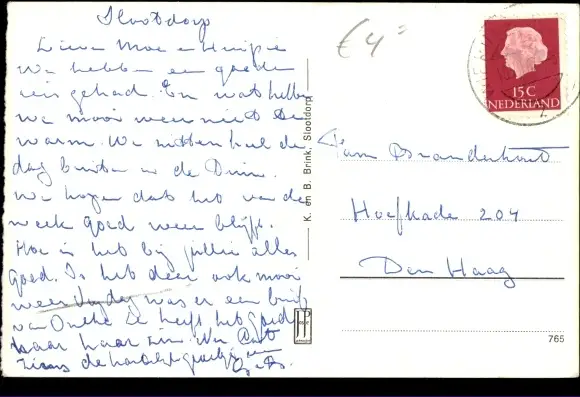 Slootdorp
Lieve Moe en
We hebben een goede
reis gehad. En wat hebben
we mooi weer niet te
warm. We zitten heel de
dag buiten in de Duin.
We hopen dat het van de
week goed weer blijft.
Hoe is het bij jullie alles
goed. Is het daar ook mooi
weer was er een brief
van ze heeft het goed
naar haar zin.
de hartelijke groetjes
€ 4 =
15 C
NEDERLAND
K. en B. Brink, Slootdorp
Fam Brandenhout
Hoefkade 204
Den Haag
JP
765